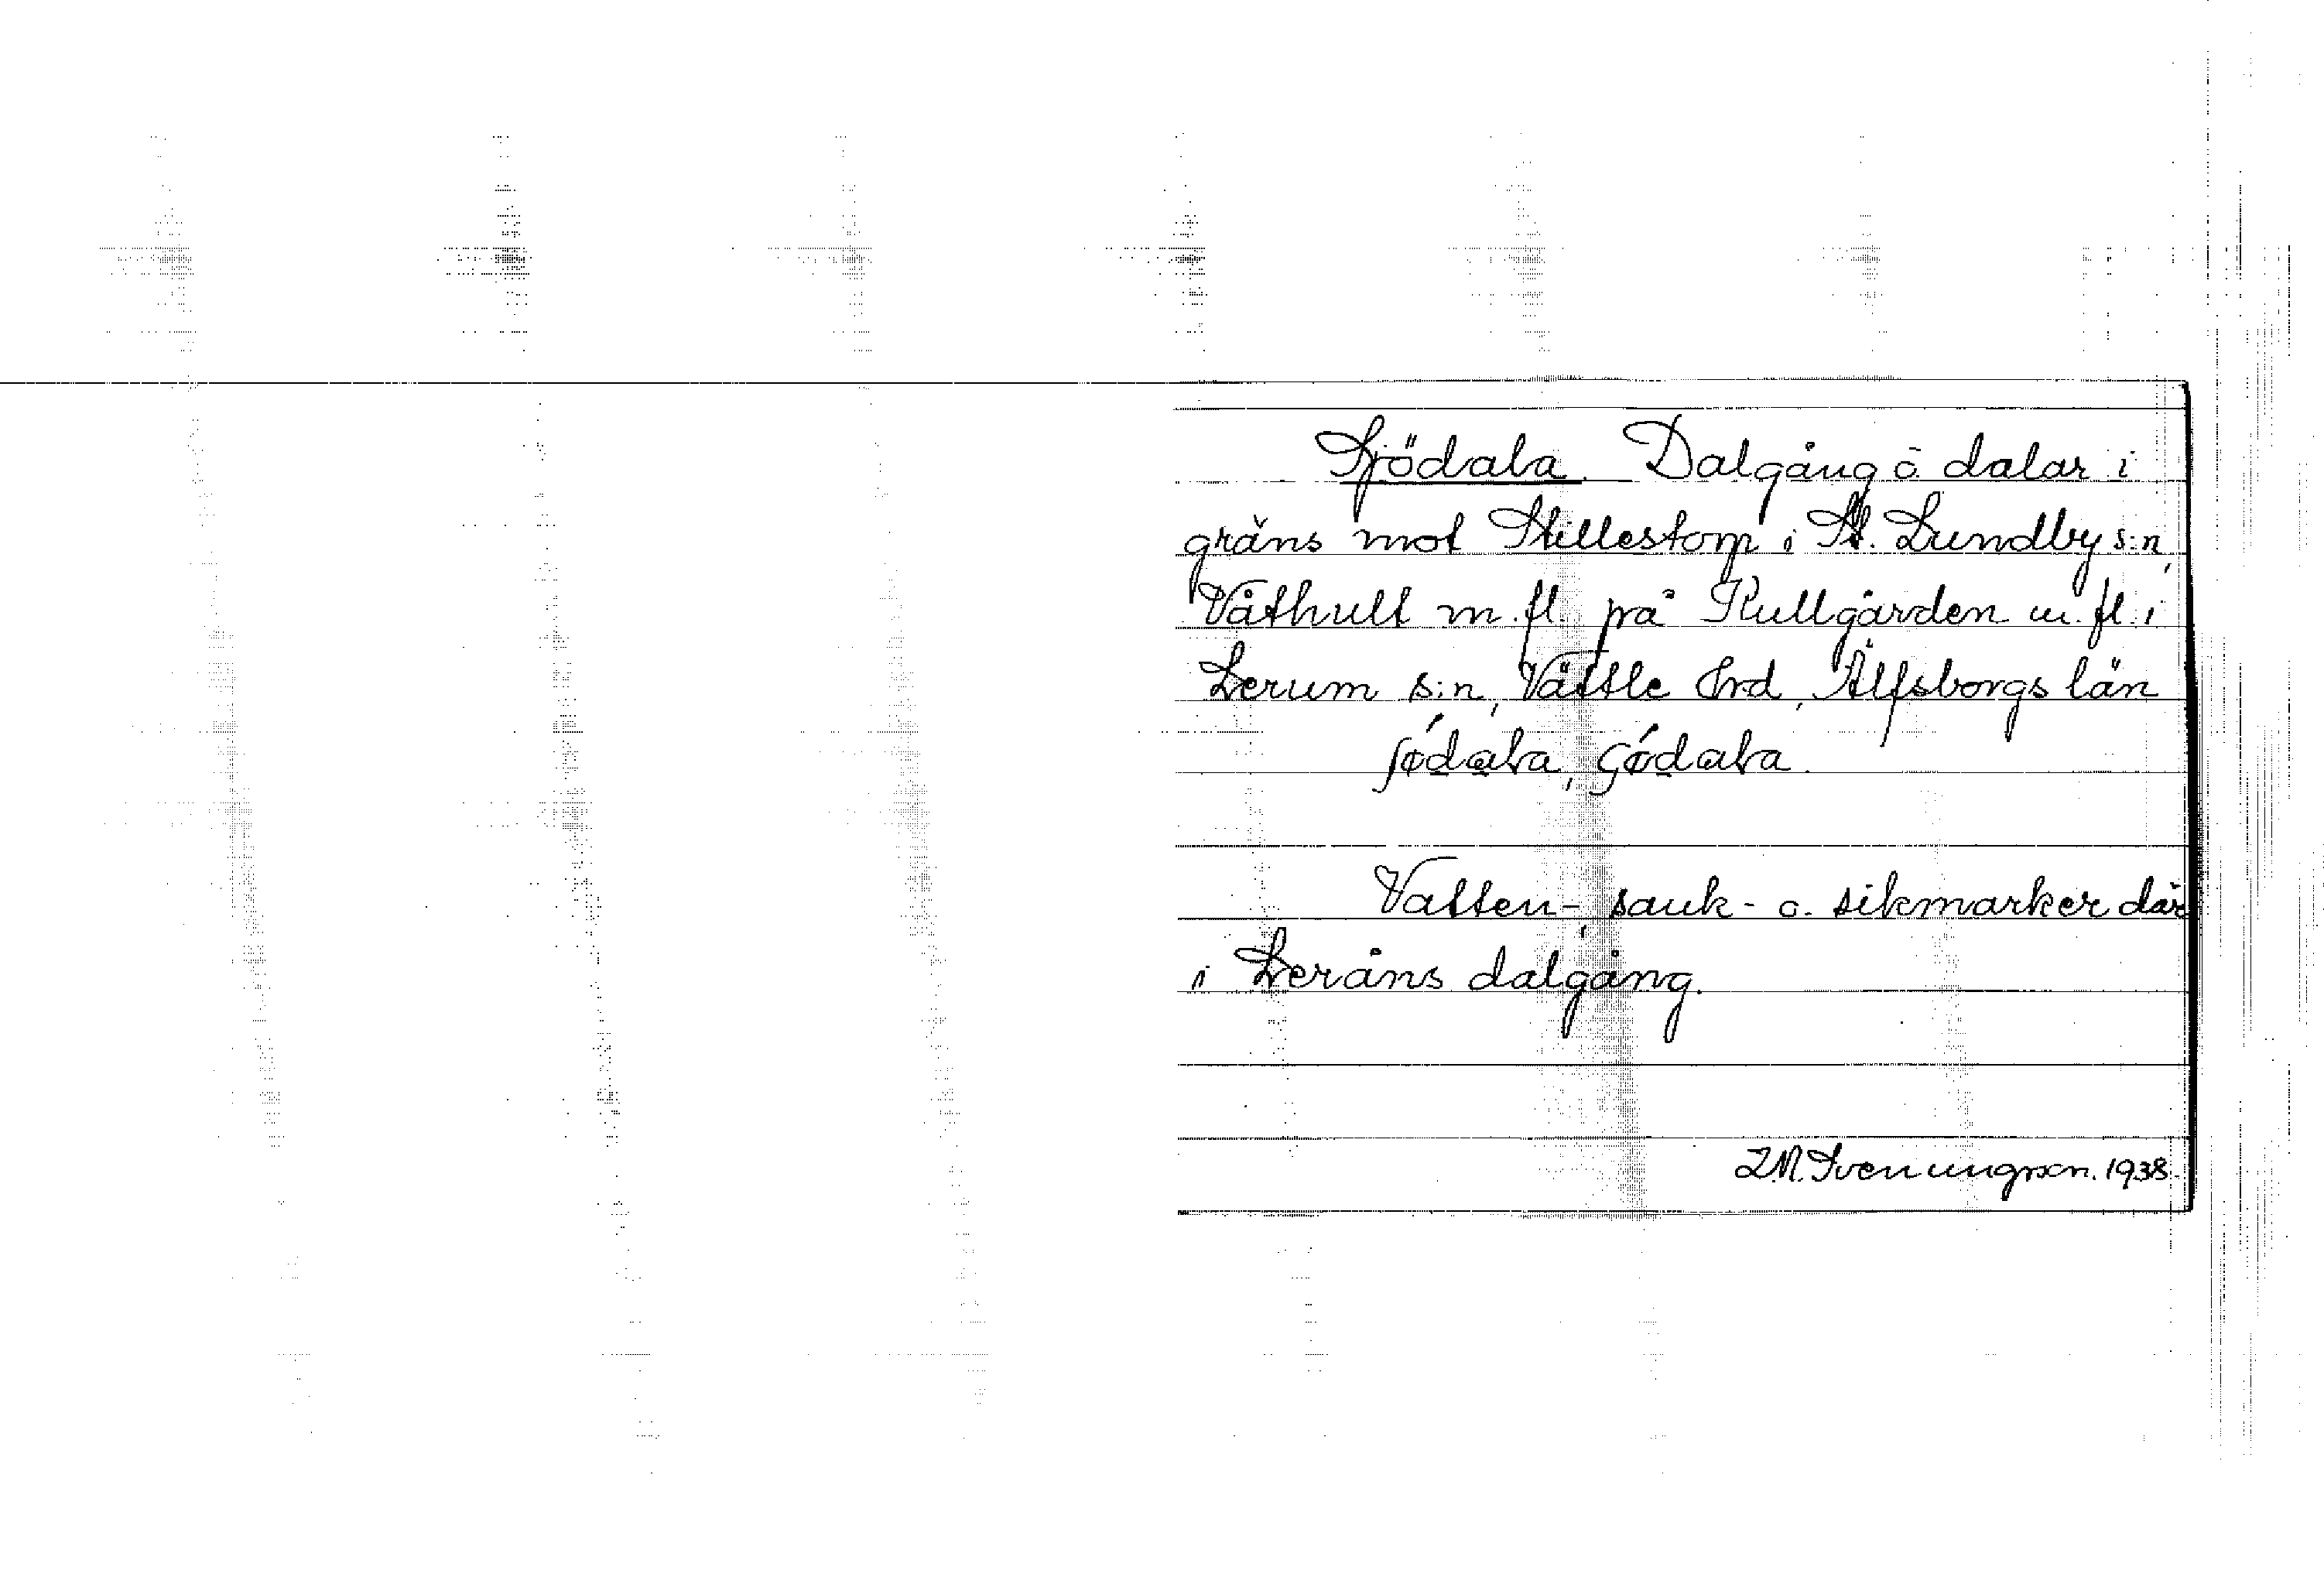 Sjödala. Dalgång o. dalar i
gräns mot Stillestorp i St. Lundby s:n,
Våthult m.fl. på Kullgården m.fl. i
Lerum s:n, Vättle hrd, Älfsborgs län
ʃǿdala, çǿdala.
Vatten-, sank- o. sikmarker där
i Leråns dalgång.
L.M. Svenungson. 1938.